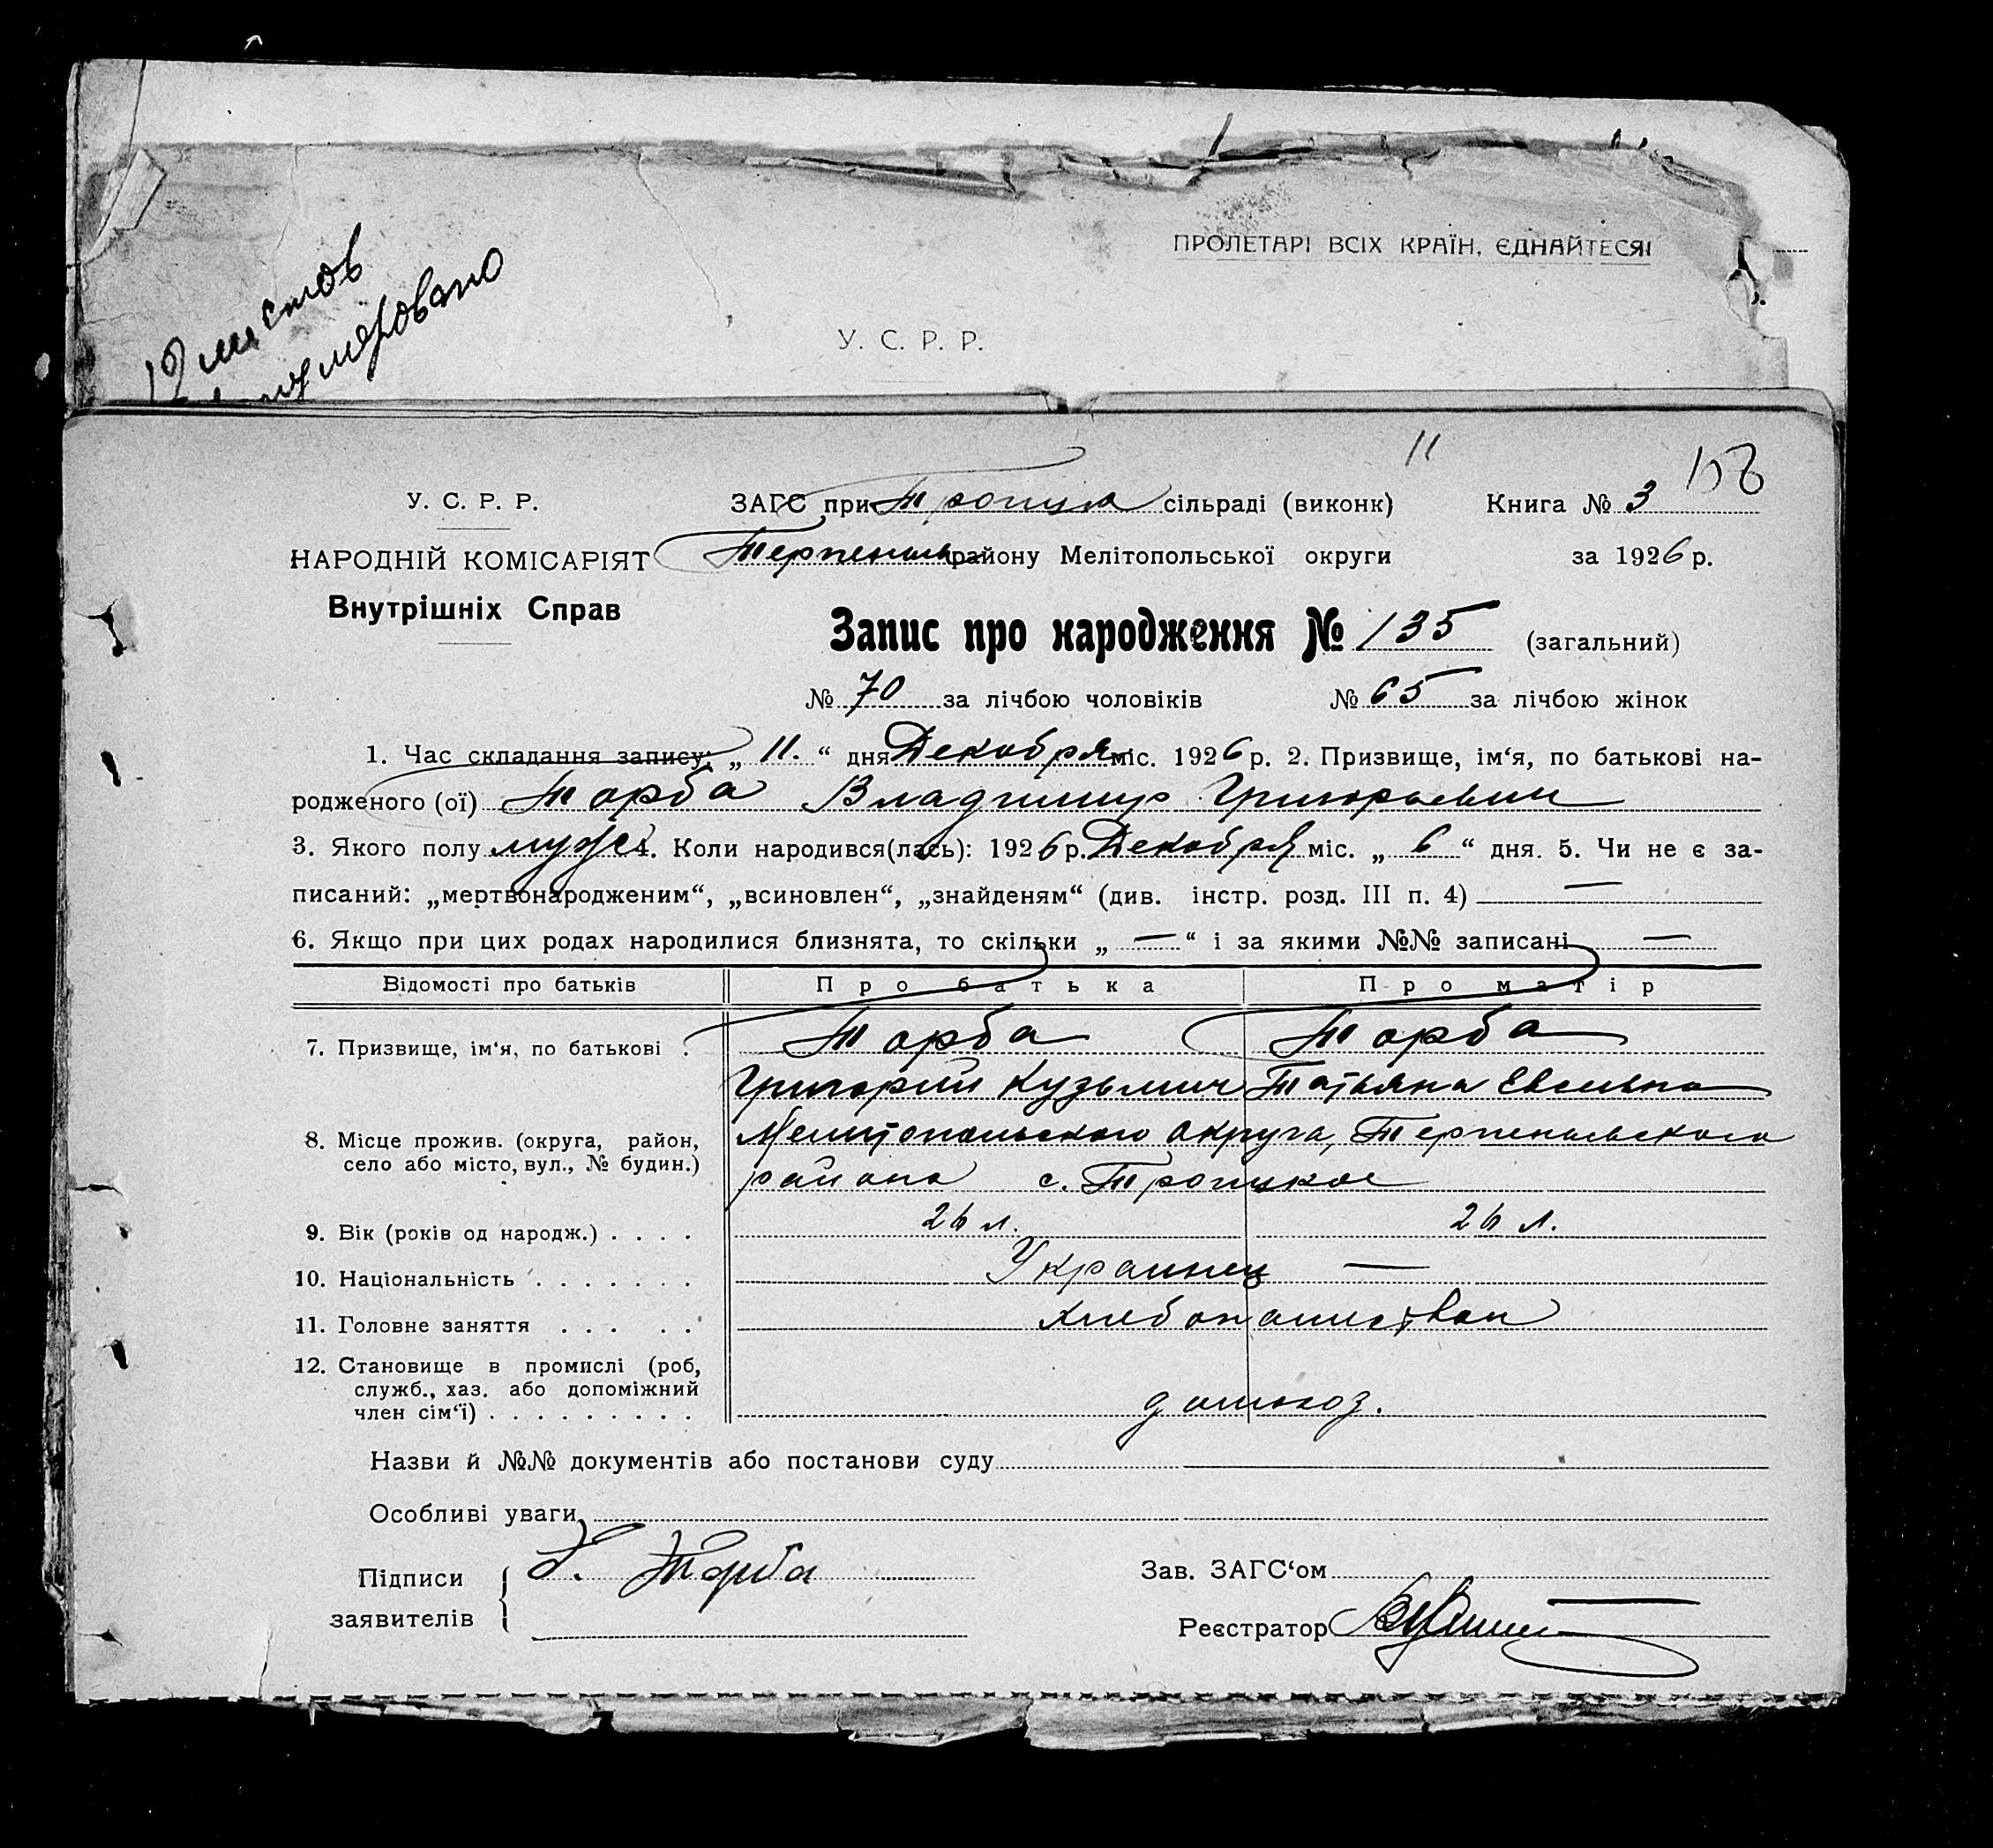 ПРОЛЕТАРІ ВСІХ КРАЇН, ЄДНАЙТЕСЯ!
листов
У. С. Р. Р.
11
У. С. Р. Р. ЗАГС при Троицк сільраді (виконк) Книга № 3
НАРОДНІЙ КОМІСАРІЯТ Терпеньев району Мелітопольської округи за 1926 р.
Внутрішніх Справ
Запис про народження № 135 (загальний)
№ 70 за лічбою чоловіків № 65 за лічбою жінок
1. Час складання запису: „ 11. “ дня Декабря міс. 1926 р. 2. Призвище, ім‘я, по батькові на-
родженого (ої) Торба Владимир Григорьевич
3. Якого полу муж 4. Коли народився(лась): 1926 р. Декабря міс. „ 6 “ дня. 5. Чи не є за-
писаний: „мертвонародженим“, „всиновлен“, „знайденям“ (див. інстр. розд. III п. 4) —
6. Якщо при цих родах народилися близнята, то скільки „ — “ і за якими №№ записані —
Відомості про батьків Про батька Про матір
7. Призвище, ім‘я, по батькові . Торба Торба
Григорий Кузьмич Татьяна
8. Місце прожив. (округа, район, Мелитопольского округа, Терпеньевского
село або місто, вул., № будин.) района с. Троицкое
9. Вік (років од народж.) . . . . 26 л. 26 л.
10. Національність . . . . . . . Украинец —
11. Головне заняття . . . . .
12. Становище в промислі (роб,
служб., хаз. або допоміжний
член сім‘ї) . . . . . . . . . домхоз.
Назви й №№ документів або постанови суду
Особливі уваги
Підписи Торба Зав. ЗАГС‘ом
заявителів Реєстратор